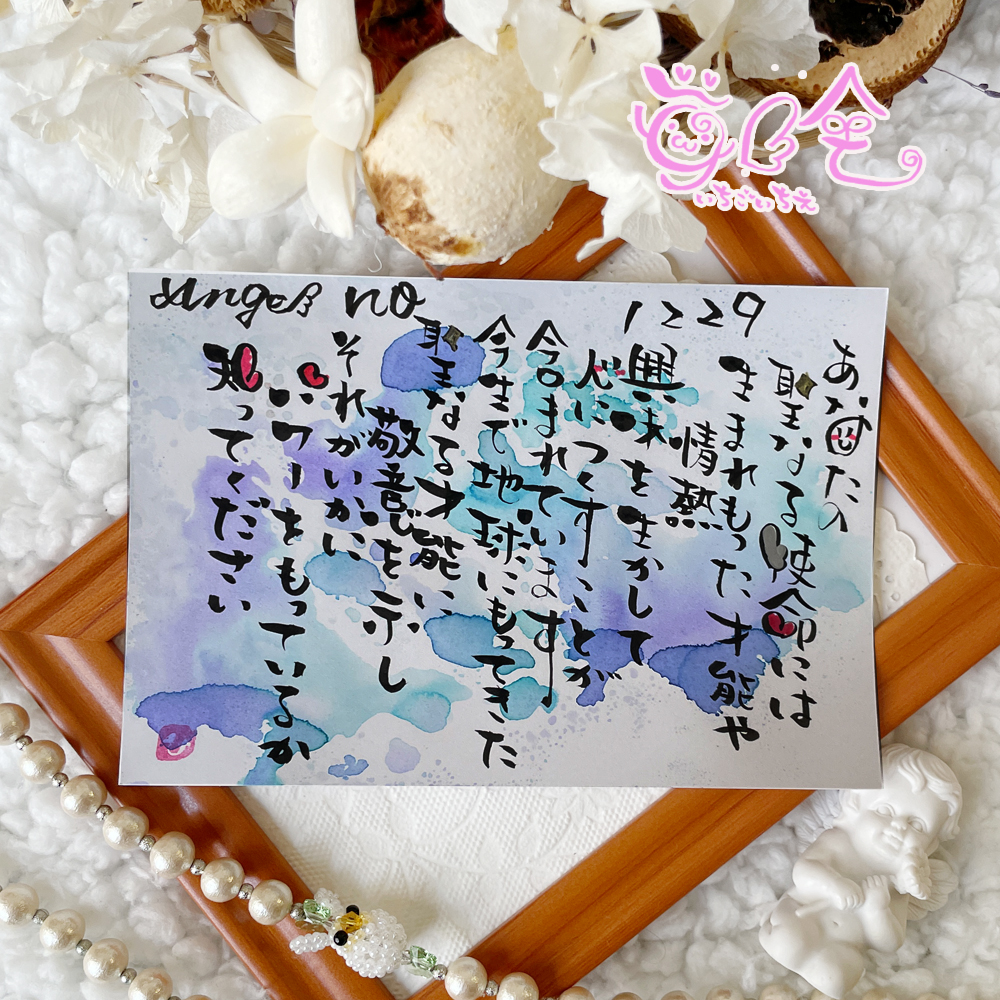 Angel no 1229
あなたの
聖なる使命には
生まれもった才能や
情熱
興味を生かして
人につくすことが
含まれています
今生で地球にもってきた
聖なる才能に
敬意を示し
それがいかに
パワーをもっているか
知ってください
いちごいちえ